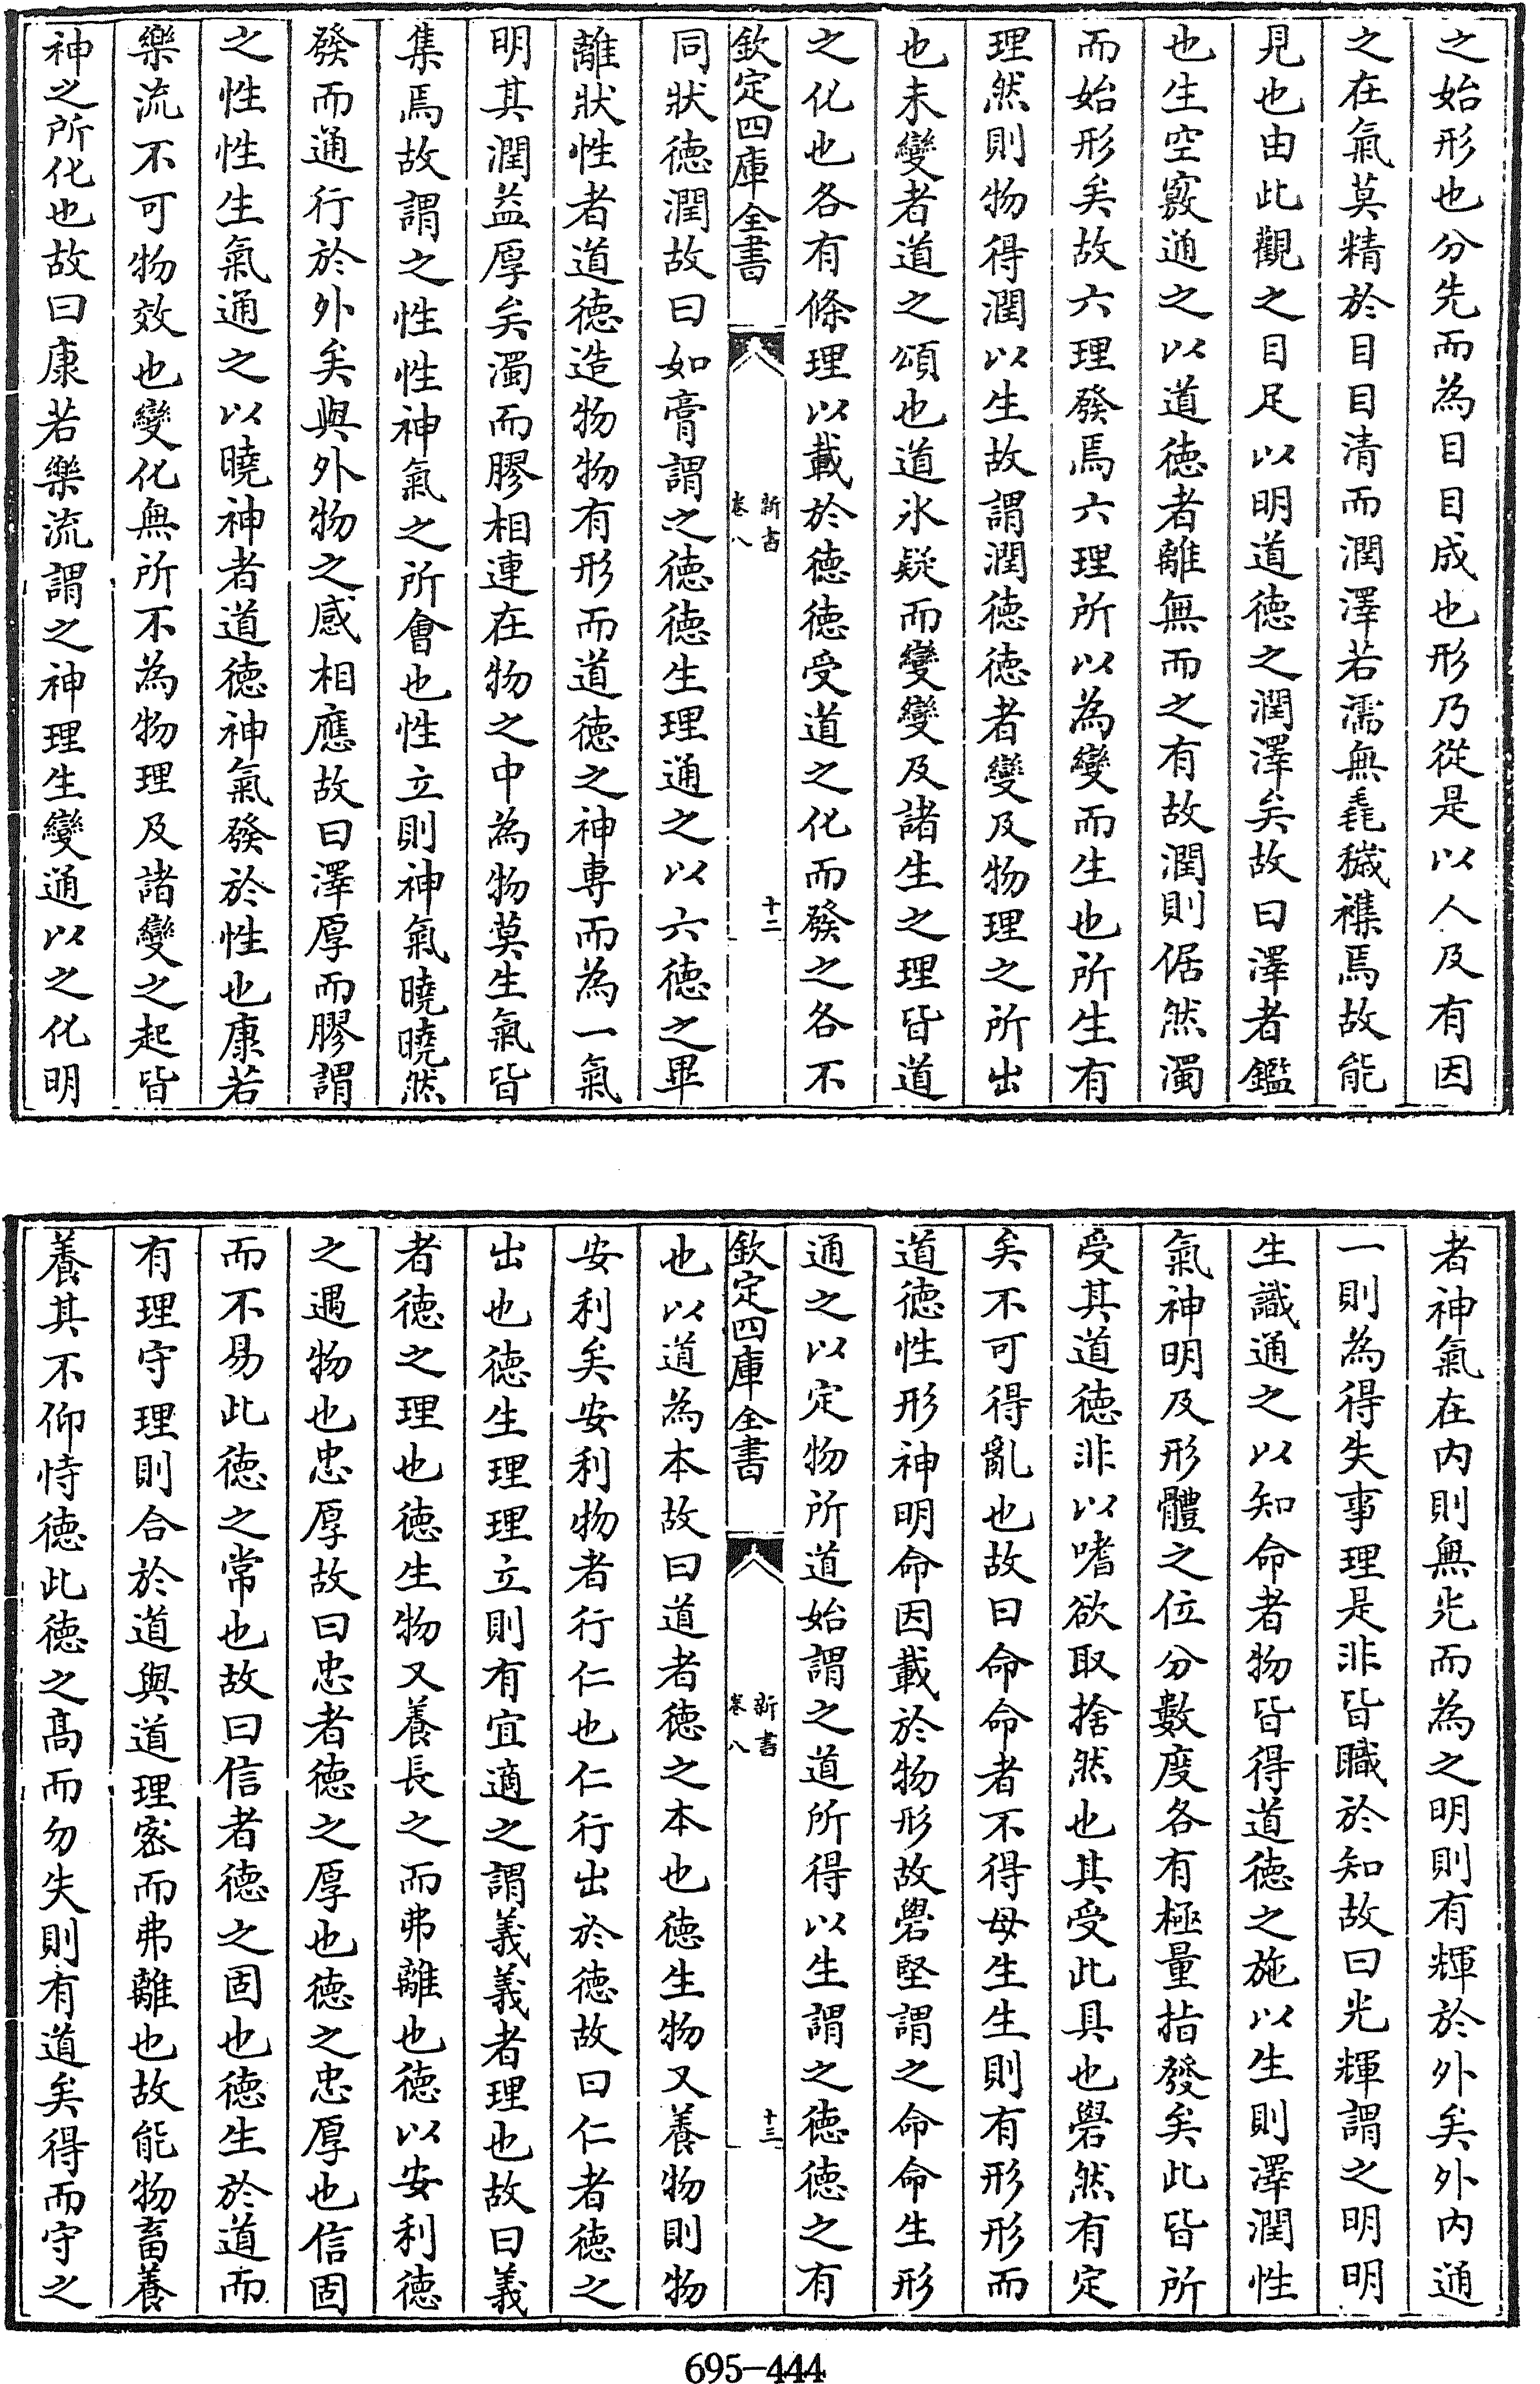 之始形也分先而為目目成也形乃從是以人及有因
之在氣莫精於目目清而潤澤若濡無毳穢襍焉故能
見也由此觀之目足以明道德之潤澤矣故曰澤者鑑
也生空竅通之以道德者離無而之有故潤則倨然濁
而始形矣故六理發焉六理所以為變而生也所生有
理然則物得潤以生故謂潤德德者變及物理之所出
也未變者道之頌也道氷疑而變變及諸生之理皆道
之化也各有條理以載於德德受道之化而發之各不
欽定四庫全書
新書
卷八
十二
同狀德潤故曰如膏謂之德德生理通之以六德之畢
離狀性者道德造物物有形而道德之神專而為一氣
明其潤益厚矣濁而膠相連在物之中為物莫生氣皆
集焉故謂之性性神氣之所會也性立則神氣曉曉然
發而通行於外矣與外物之感相應故曰澤厚而膠謂
之性性生氣通之以曉神者道德神氣發於性也康若
樂流不可物效也變化無所不為物理及諸變之起皆
神之所化也故曰康若樂流謂之神理生變通以之化明
者神氣在內則無光而為之明則有輝於外矣外內通
一則為得失事理是非皆職於知故曰光輝謂之明明
生識通之以知命者物皆得道德之施以生則澤潤性
氣神明及形體之位分數度各有極量指發矣此皆所
受其道德非以嗜欲取捨然也其受此具也礐然有定
矣不可得亂也故曰命命者不得毋生生則有形形而
道德性形神明命因載於物形故礐堅謂之命命生形
通之以定物所道始謂之道所得以生謂之德德之有
欽定四庫全書
新書
卷八
十三
也以道為本故曰道者德之本也德生物又養物則物
安利矣安利物者行仁也仁行出於德故曰仁者德之
出也德生理理立則有宜適之謂義義者理也故曰義
者德之理也德生物又養長之而弗離也德以安利德
之遇物也忠厚故曰忠者德之厚也德之忠厚也信固
而不易此德之常也故曰信者德之固也德生於道而
有理守理則合於道與道理密而弗離也故能物畜養
養其不仰恃德此德之高而勿失則有道矣得而守之
695-444